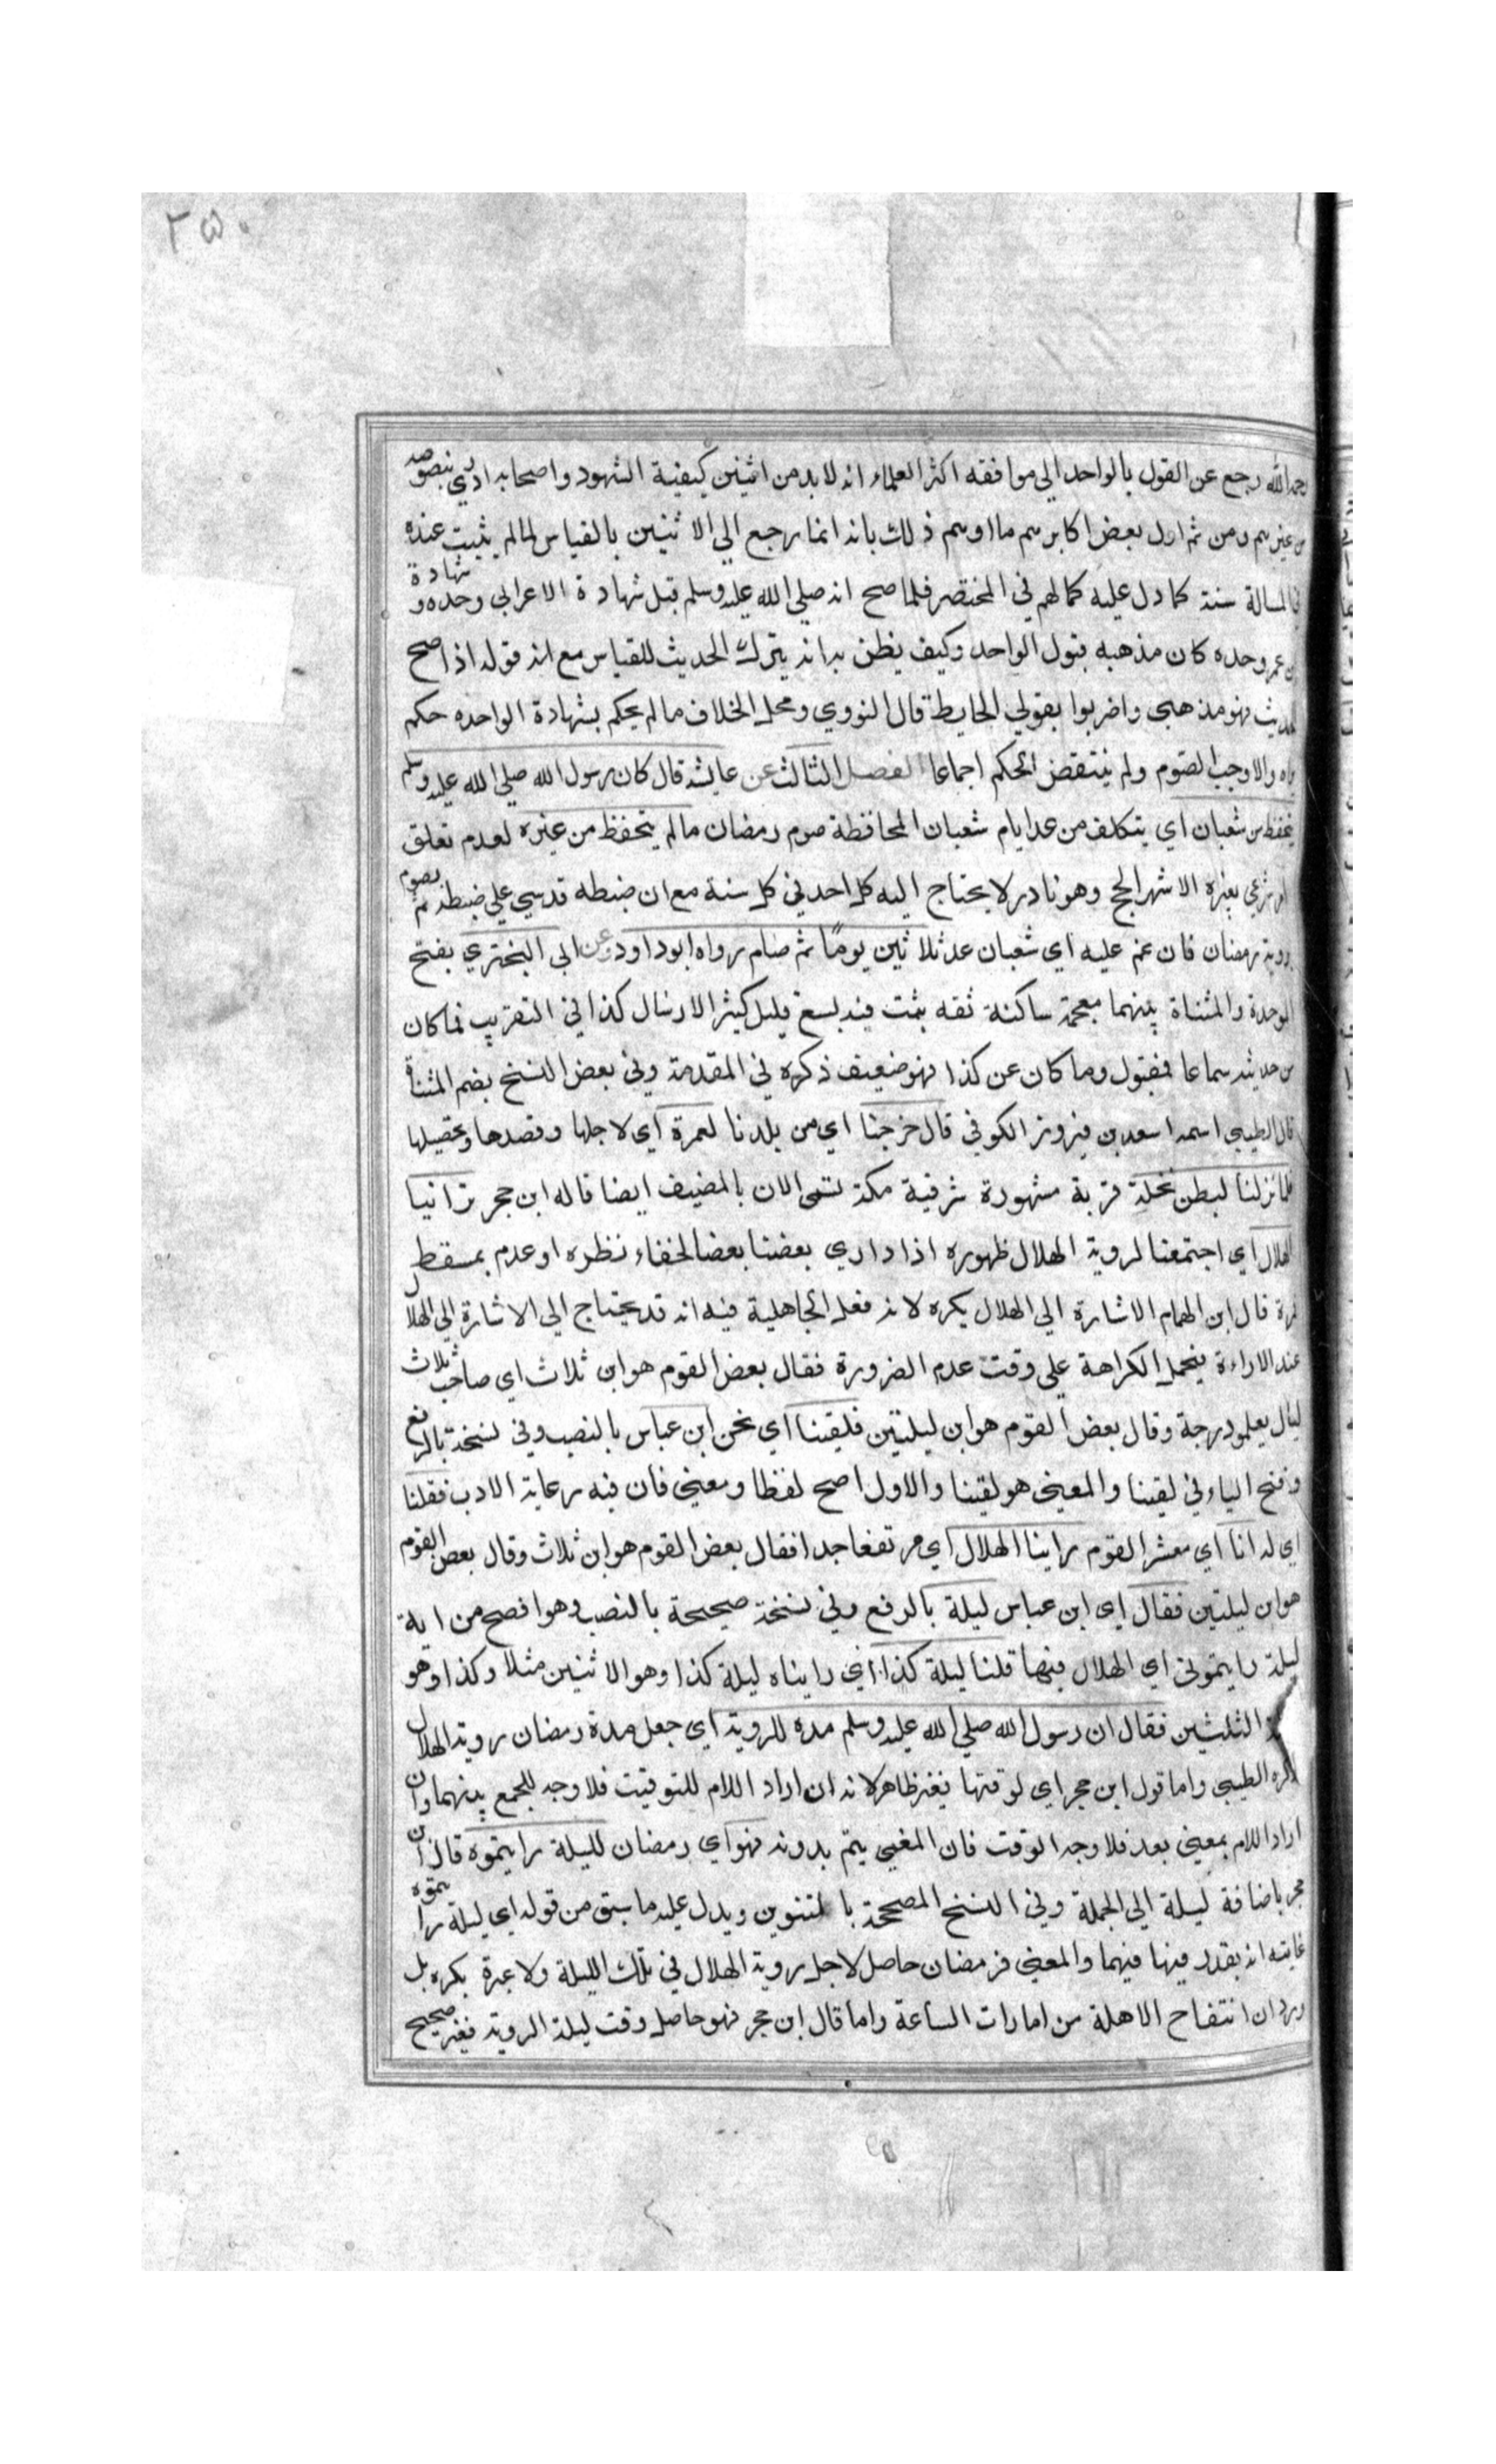 ٢٥٠
رحمه الله رجع عن القول بالواحد الي موافقه اكثر العلماء انه لابد من اثنين كيفية الشهود واصحابه ادري بنصوصه
من غيرهم ومن ثم اول بعض اكابرهم ما اوهم ذلك بانه انما رجع الي الاثنين بالقياس لما لم يثبت عنده
في المسالة سنة كما دل عليه كمالهم في المختصر فلما صح انه صلي الله عليه وسلم قبل شهادة الاعرابي وحده و شهادة
بن عمر وحده كان مذهبه قبول الواحد وكيف يظن به انه يترك الحديث للقياس مع انه قوله اذا صح
الحديث فهو مذهبي واضربوا بقولي الحايط قال النووي ومحل الخلاف ما لم يحكم بشهادة الواحده حكم
يراه والا وجب الصوم ولم ينتقض الحكم اجماعا الفصل الثالث عن عايشه قال كان رسول الله صلي الله عليه وسلم
يتحفظ من شعبان اي يتكلف من عد ايام شعبان المحافظة صوم رمضان ما لم يتحفظ من غيره لعدم تعلق
امر شرعي بغيره الا شهر الحج وهو نادر لا يحتاج اليه كل احد في كل سنة مع ان ضبطه قد سي علي ضبطه ثم يصوم
روية رمضان فان غم عليه اي شعبان عد ثلاثين يومًا ثم صام رواه ابوداود وعن ابي البختري بفتح
الموحدة والمثناة بينهما معجمة ساكنة ثقه ثبت فيه بسع قليل كثير الارسال كذا في التقريب فما كان
من حديثه سماعا فمقبول وما كان عن كذا فهو ضعيف ذكره في المقدمة وفي بعض النسخ بضم المثناة
قال الطيبي اسمه اسعد بن فيروز الكوفي قال خرجنا اي من بلدنا لعمرة اي لاجلها وقصدها وتحصيلها
فلما نزلنا لبطن نخلة قرية مشهورة شرقية مكة تسمى الان بالمضيف ايضا قاله ابن حجر ترانيا
الهلال اي اجتمعنا لروية الهلال ظهوره اذا داري بعضنا بعضا لخفاء نظره او عدم بمسقط
قمرة قال ابن الهمام الاشارة الي الهلال يكره لانه فعل الجاهلية فيه انه قد يحتاج الي الاشارة الي الهلال
عند الاراءة فيحمل الكراهة علي وقت عدم الضرورة فقال بعض القوم هو ابن ثلاث اي صاحب ثلاث
ليال يعلمو درجة وقال بعض القوم هو ابن ليلتين فلقينا اي نحن ابن عباس بالنصب وفي نسخة بالرفع
وفتح الياء في لقينا والمعنى هو لقينا والاول اصح لفظا ومعنى فان فيه رعاية الادب فقلنا
اي له انا اي معشر القوم راينا الهلال اي مرتفعا جدا فقال بعض القوم هو ابن ثلاث وقال بعض القوم
هو ابن ليلتين فقال اي ابن عباس ليلة بالرفع وفي نسخة صحيحة بالنصب وهو افصح من اية
ليلة رايتموني اي الهلال فيها قلنا ليلة كذا اي رايناه ليلة كذا وهو الاثنين مثلا وكذا وهو
الثلثين فقال ان رسول الله صلي الله عليه وسلم مده للروية اي جعل مدة رمضان روية الهلال
ذكره الطيبي واما قول ابن حجر اي لوقتها فغير ظاهر لانه ان اراد اللام للتوقيت فلا وجه للجمع بينهما وان
اراد اللام بمعنى بعد فلا وجه الوقت فان المغيي يتم بدونه فهو اي رمضان لليلة رايتموه قال ابن
حجر باضافة ليلة الي الجملة وفي النسخ المصححة بالتنوين ويدل عليه ما سبق من قوله اي ليلة رايتموه
غايته انه يقدر فيها فيهما والمعنى فرمضان حاصل لاجل روية الهلال في تلك الليلة ولا عبرة بكره بل
ورد ان انتفاح الاهلة من امارات الساعة واما قال ابن حجر فهو حاصل وقت ليلة الروية فغير صحيح